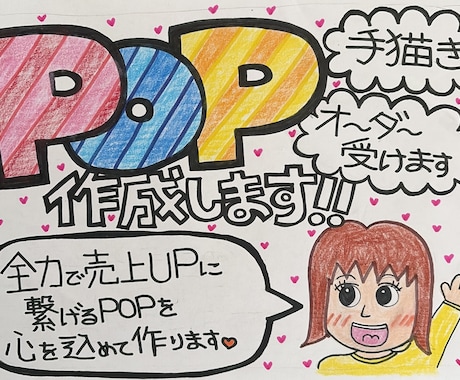 POP
作成します!!
手描き
オ〜ダ〜
受けます
全力で売上UPに
繋げるPOPを
心を込めて作ります♥